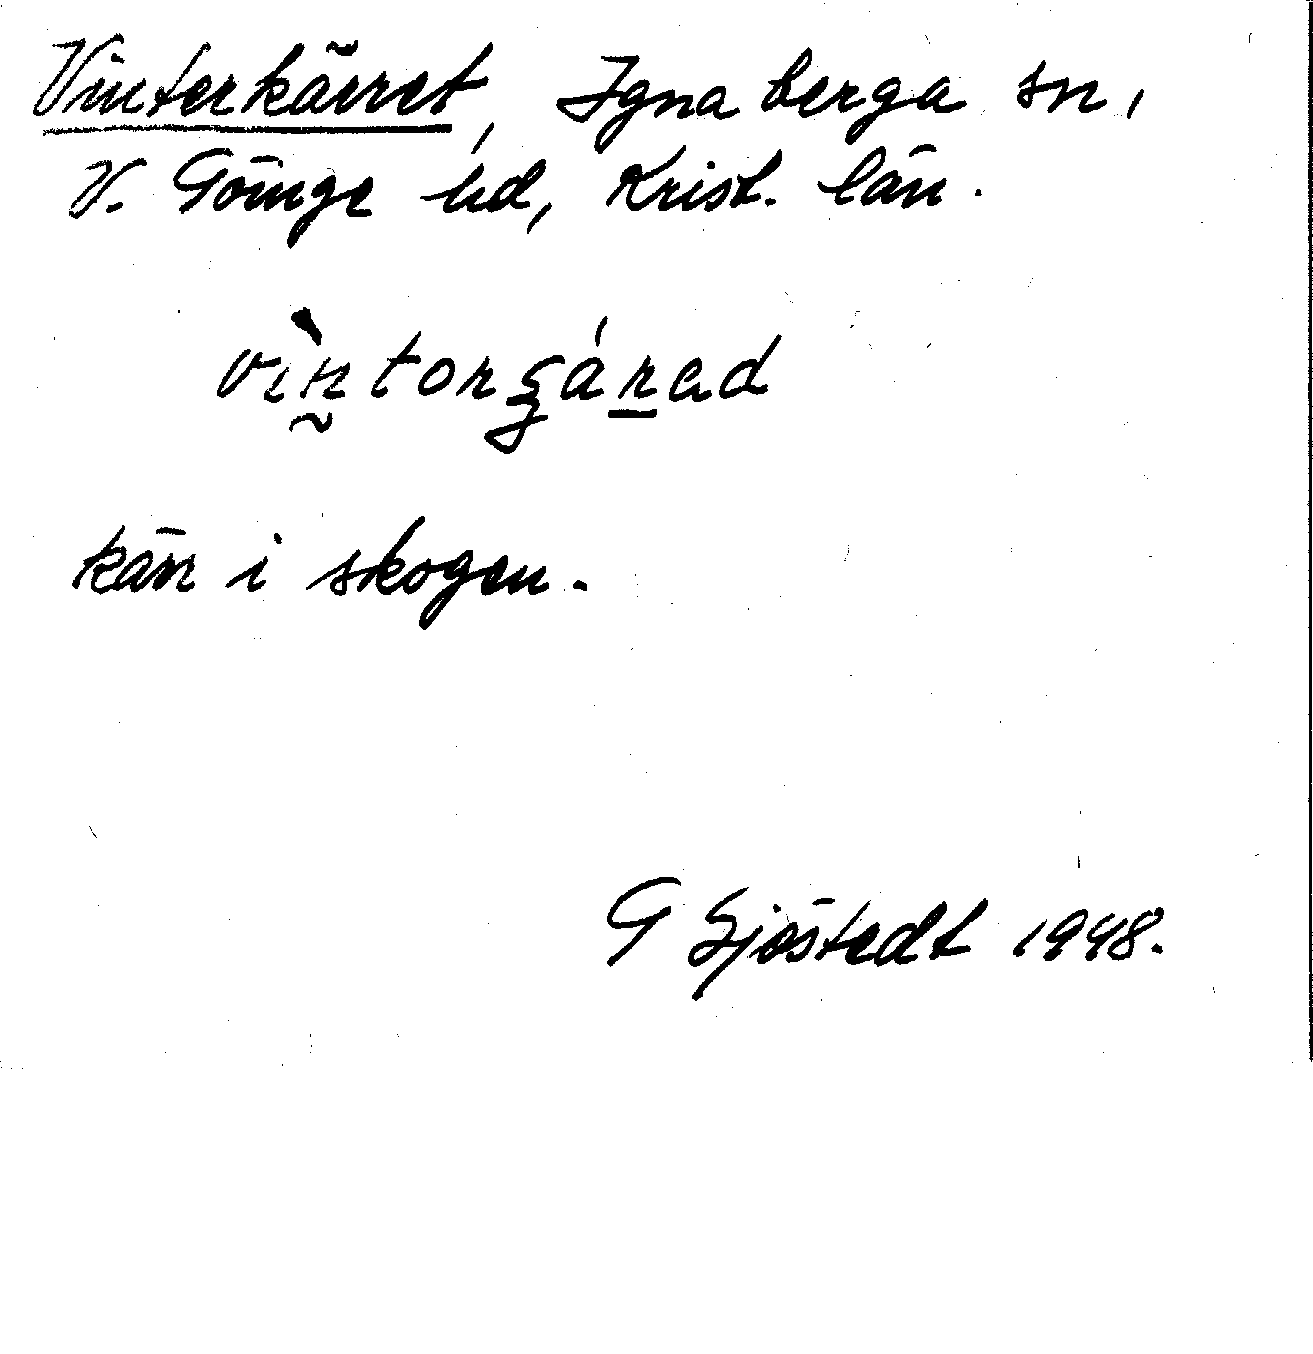 Vinterkärret, Ignaberga sn,
V. Göinge hd, Krist. län.
vìntorgárad
kärr i skogen.
G Sjöstedt 1948.